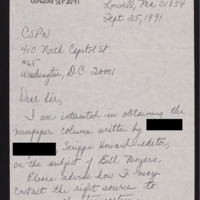 004290 SEP3091
Lowell, Ma. 01854
Sept 25, 1991
CSPN
400 North Capitol St
#65
Washington, D.C. 20001
Dear Sir,
I am interested in obtaining the
newspaper column written by
Scripps Howard editor,
on the subject of Bill Tangers,
Please advise how I may
contact the right source to